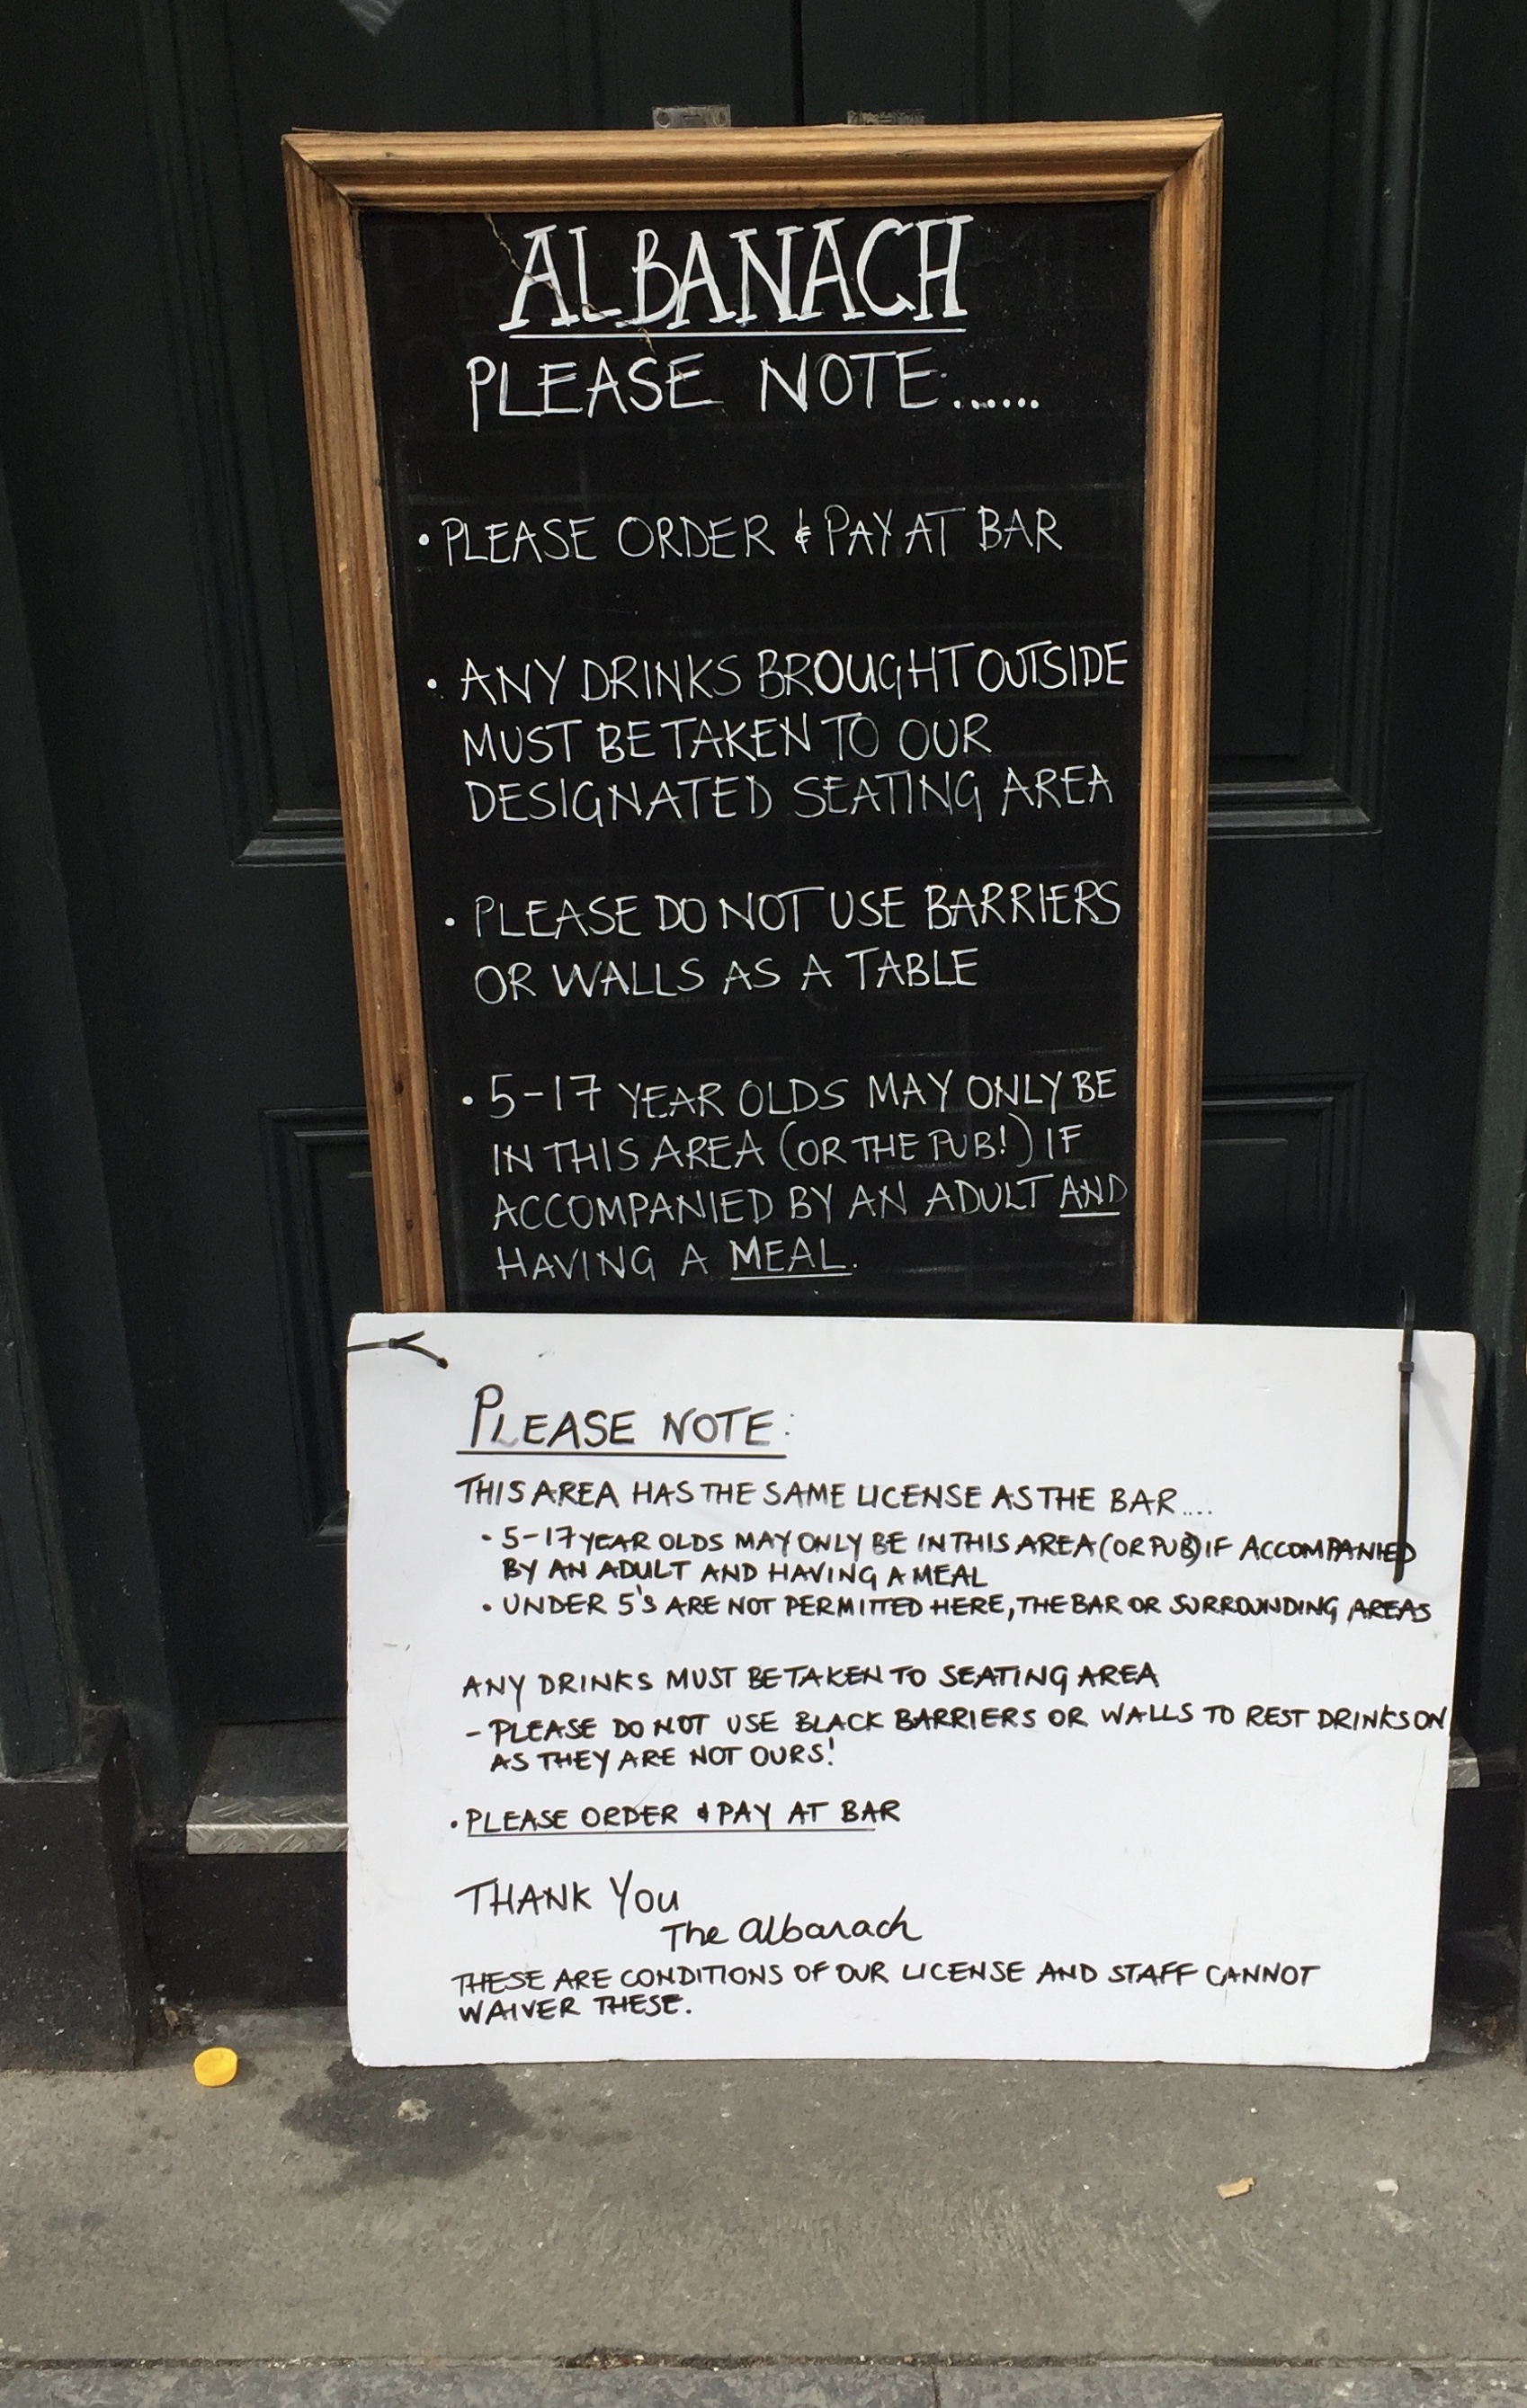 ALBANACH
PLEASE NOTE:......
• PLEASE ORDER & PAY AT BAR
• ANY DRINKS BROUGHT OUTSIDE
MUST BE TAKEN TO OUR
DESIGNATED SEATING AREA
• PLEASE DO NOT USE BARRIERS
OR WALLS AS A TABLE
• 5-17 YEAR OLDS MAY ONLY BE
IN THIS AREA (OR THE PUB!) IF
ACCOMPANIED BY AN ADULT AND
HAVING A MEAL.
PLEASE NOTE:
THIS AREA HAS THE SAME LICENSE AS THE BAR....
• 5-17 YEAR OLDS MAY ONLY BE IN THIS AREA (OR PUB) IF ACCOMPANIED
BY AN ADULT AND HAVING A MEAL
• UNDER 5'S ARE NOT PERMITTED HERE, THE BAR OR SURROUNDING AREAS
ANY DRINKS MUST BE TAKEN TO SEATING AREA
- PLEASE DO NOT USE BLACK BARRIERS OR WALLS TO REST DRINKS ON
AS THEY ARE NOT OURS!
• PLEASE ORDER & PAY AT BAR
THANK YOU
The Albanach
THESE ARE CONDITIONS OF OUR LICENSE AND STAFF CANNOT
WAIVER THESE.